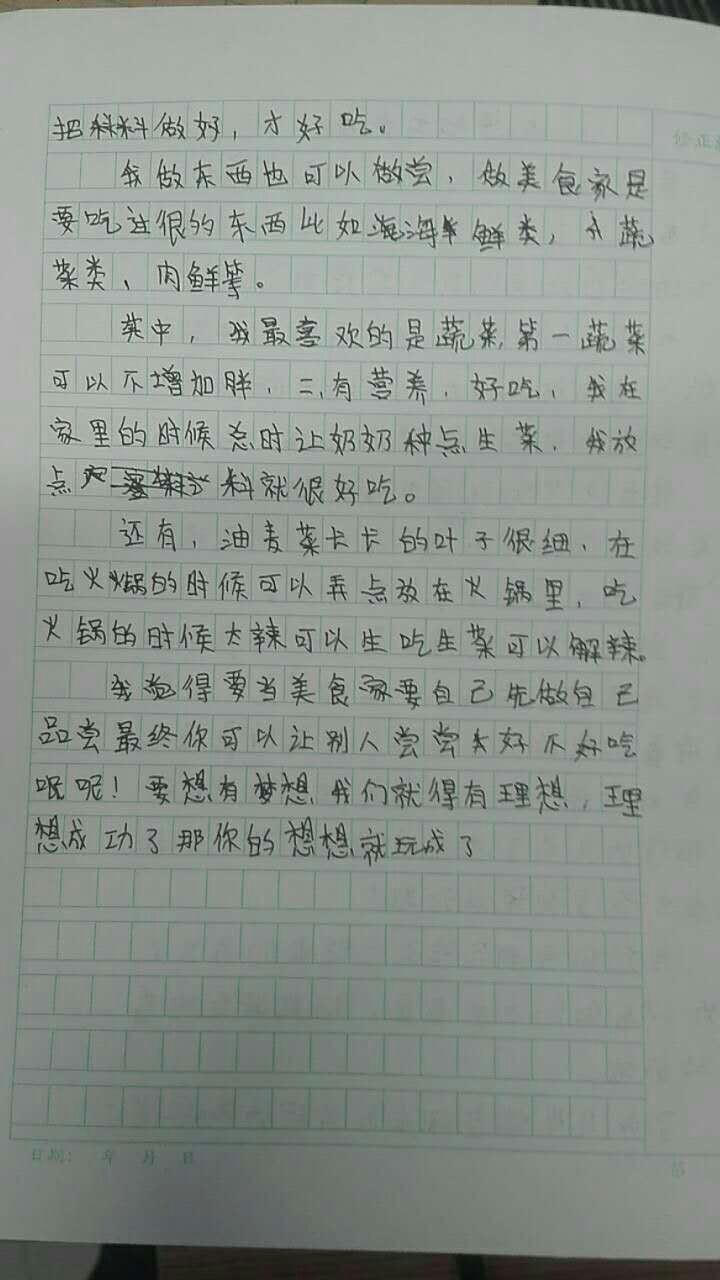 把料做好，才好吃。
我做东西也可以做尝，做美食家是
要吃过很的东西比如海鲜类，蔬
菜类、肉鲜等。
其中，我最喜欢的是蔬菜,第一蔬菜
可以不增加胖，二,有营养，好吃，我在
家里的时候总时让奶奶种点生菜，我放
点料就很好吃。
还有，油麦菜卡卡的叶子很细，在
吃火锅的时候可以弄点放在火锅里，吃
火锅的时候太辣可以生吃生菜可以解辣。
我觉得要当美食家要自己先做自己
品尝最终你可以让别人尝尝好不好吃
呢！要想有梦想我们就得有理想，理
想成功了那你的想想就玩成了
日期： 年 月 日